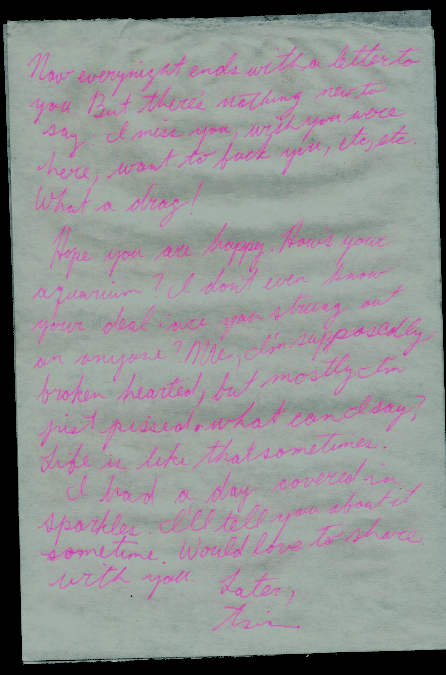 Now everynight ends with a letter to
you But there's nothing new to
say. I miss you, wish you were
here, want to fuck you, etc, etc.
What a drag!
Hope you are happy. How's your
aquarium? I don't even know
your deal. are you strung out
on anyone? Me, I'm supposedly
broken hearted, but mostly I'm
just pissed. what can I say?
Life is like that sometimes.
I had a day covered in
sparkles. I'll tell you about it
sometime. Would love to share
with you Later,